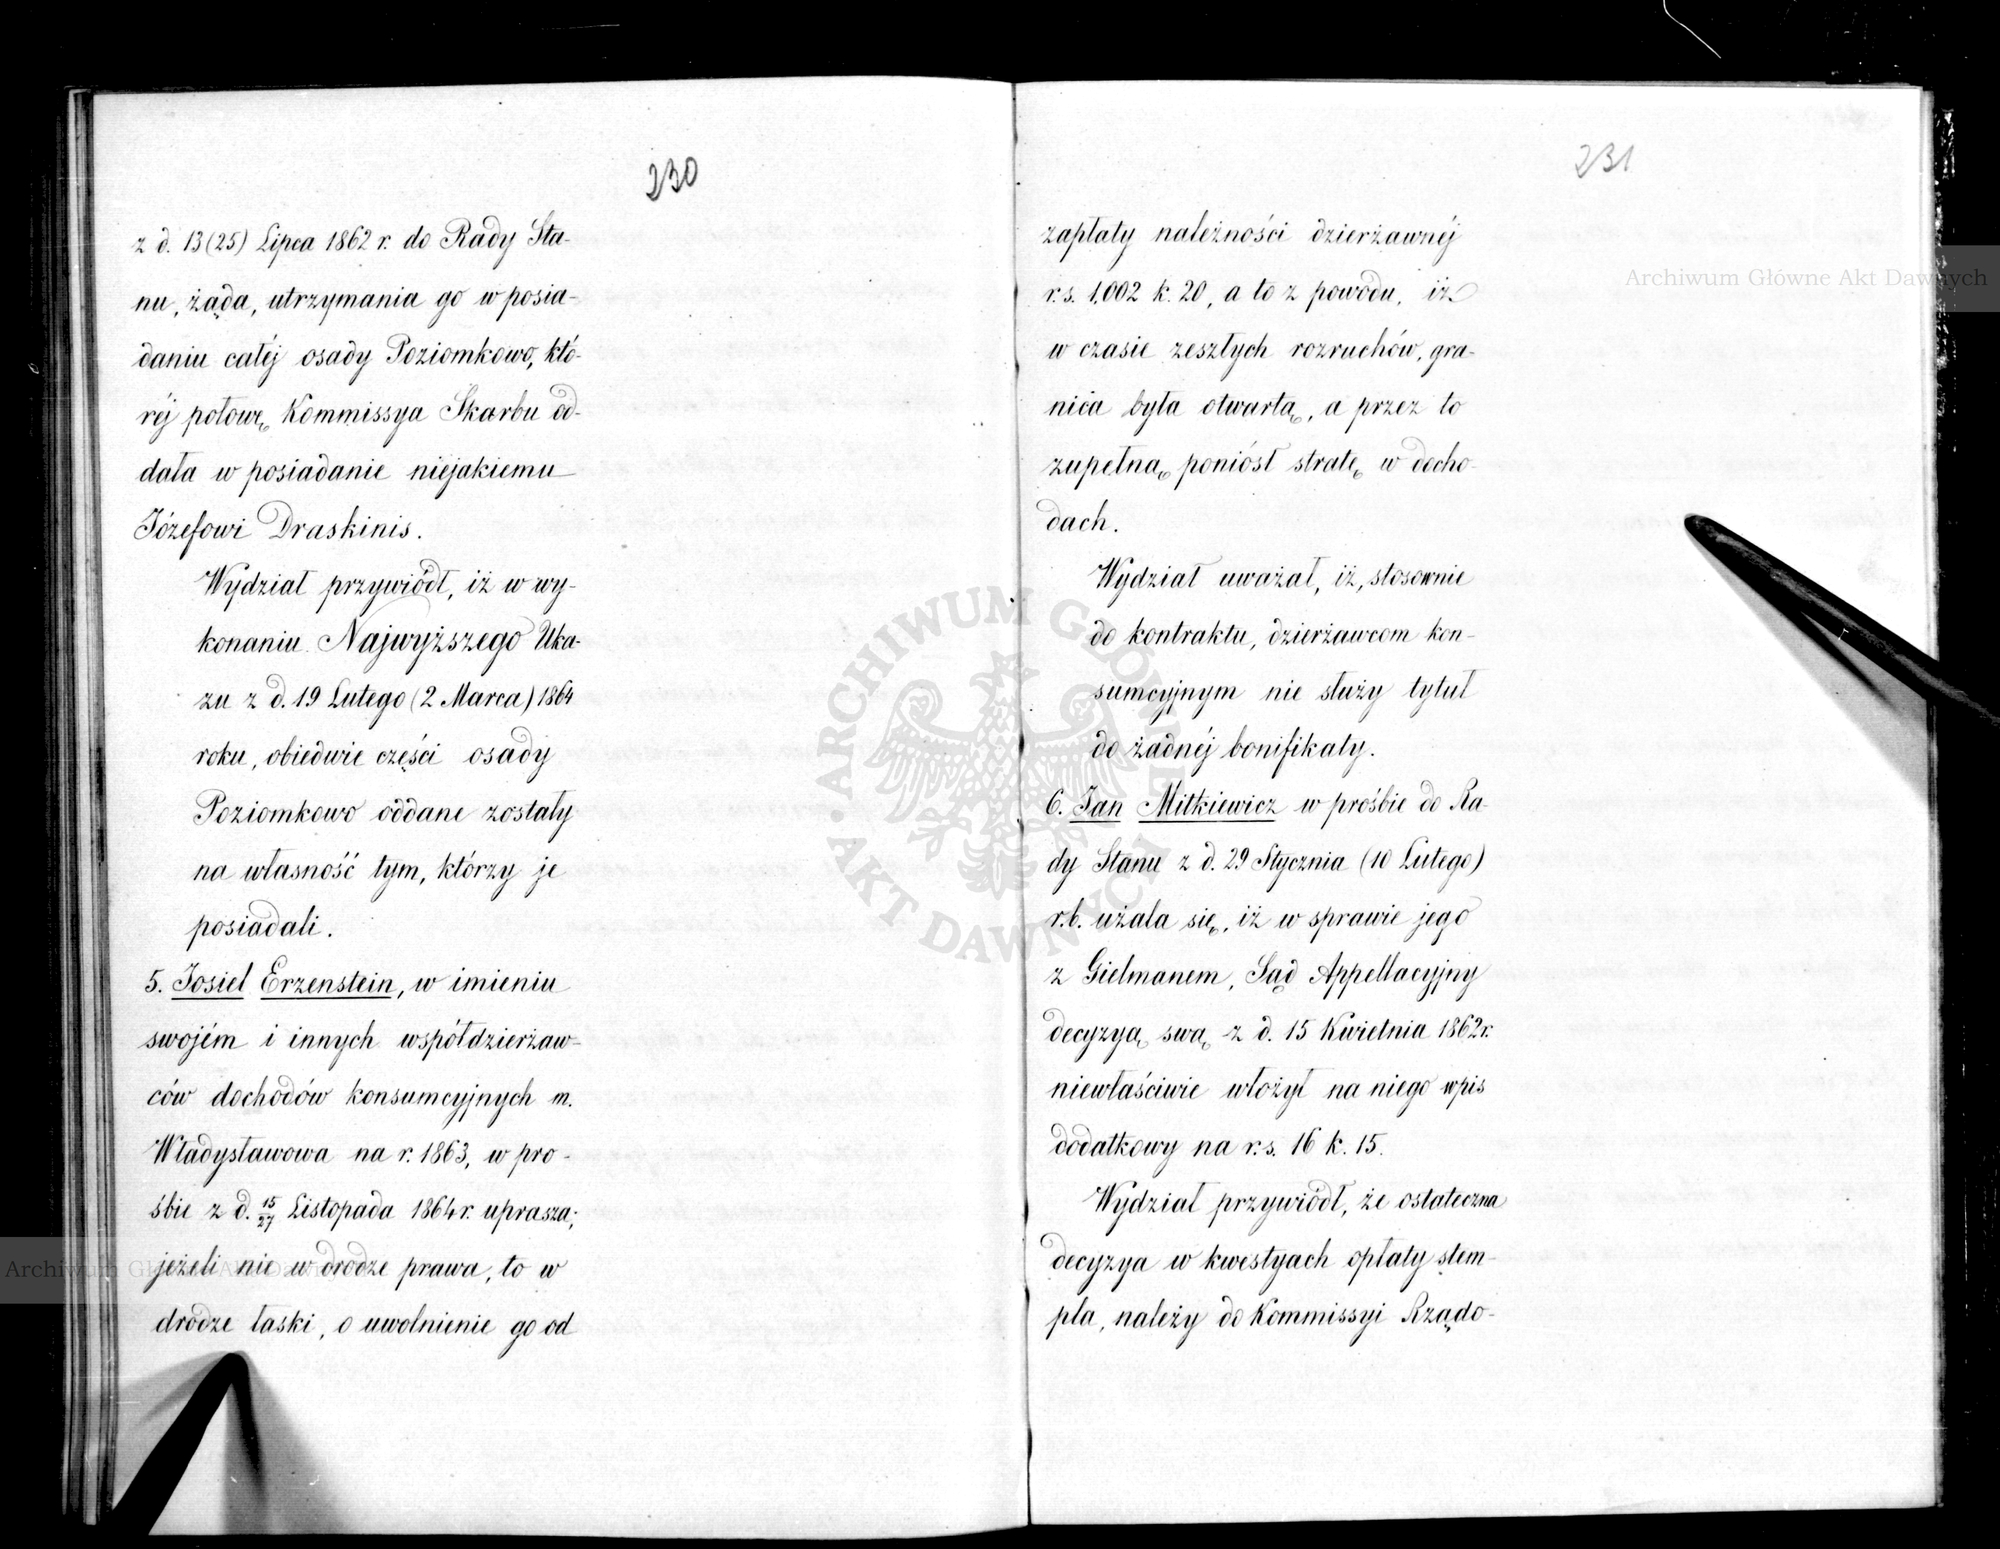 230
z d. 13 (25) Lipca 1862 r. do Rady Sta-
nu, żąda, utrzymania go w posia-
daniu całéj osady Poziomkowo, któ-
réj połowę Kommissya Skarbu od-
dała w posiadanie niejakiemu
Józefowi Draskinis.
Wydział przywiódł, iż w wy-
konaniu Najwyższego Uka-
zu z d. 19 Lutego (2 Marca) 1864
roku, obiedwie części osady
Poziomkowo oddane zostały
na własność tym, którzy je
posiadali.
5. Josiel Erzenstein, w imieniu
swojém i innych współdzierżaw-
ców dochodów konsumcyjnych m.
Władysławowa na r. 1863, w pro-
śbie z d. 15/27 Listopada 1864 r. uprasza,
jeżeli nie w drodze prawa, to w
drodze łaski, o uwolnienie go od
231
zapłaty należności dzierżawnéj
r.s. 1,002 k. 20, a to z powodu, iż
w czasie zeszłych rozruchów, gra-
nica była otwartą, a przez to
zupełną poniósł stratę w docho-
dach.
Wydział uważał, iż, stosownie
do kontraktu, dzierżawcom kon-
sumcyjnym nie służy tytuł
do żadnéj bonifikaty.
6. Jan Mitkiewicz w prośbie do Ra-
dy Stanu z d. 29 Stycznia (10 Lutego)
r.b. użala się, iż w sprawie jego
z Gielmanem, Sąd Appellacyjny
decyzyą swą z d. 15 Kwietnia 1862 r.
niewłaściwie włożył na niego wpis
dodatkowy na r.s. 16 k. 15.
Wydział przywiódł, że ostateczna
decyzya w kwestyach opłaty stem-
pla, należy do Kommissyi Rządo-
Archiwum Główne Akt Dawnych
Archiwum Główne Akt Dawnych
ARCHIWUM GŁÓWNE
AKT DAWNYCH